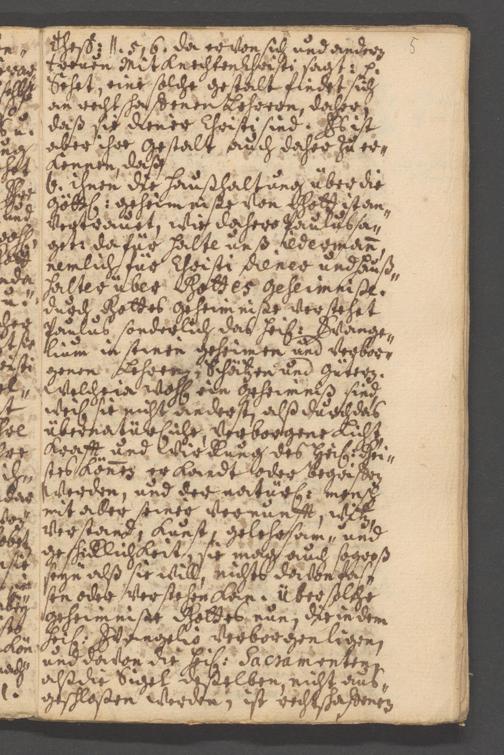 5
Thess: II. 5, 6. da er von sich und andern
treuen Mit Knechten Christi sagt: p.
Sehet, eine solche gestalt findet sich
an rechtschaffenen Lehrern, daher,
daß sie diener Christi sind. Es ist
aber ihre gestalt auch daher zu er„
kennen, daß
6. ihnen die Haußhaltung über die
Göttl: geheimniße von Gott ist an„
vertrauet, wie dahero Paulus sa„
get: dafür halte unß iedermann,
nemlich für Christi diener und Hauß„
halter über Gottes geheimniße.
durch Gottes geheimniße verstehet
Paulus sonderlich das heil: Evange„
lium in seinen geheimen und verbor„
genen Lehren, Schätzen und Gütern.
Welche ja wohl ein geheimniß sind,
weil sie nicht anderst, alß durch das
übernatürliche, verborgene Licht,
Krafft und Würckung des heil: Gei„
stes können erkandt oder begriffen
werden, und der natürl: mensch
mit aller seiner vernunfft, witz,
verstand, Kunst, gelehrsam„ und
geschicklichkeit, sie mag auch so groß
seyn alß sie will, nichts davon fas„
sen oder verstehen kan. über solche
geheimniße Gottes nun, die in dem
heil: Evangelio verborgen ligen,
und davon die heil: Sacramenten,
alß die Sigel deßelben, nicht aus„
geschloßen werden, ist rechtschaffenen